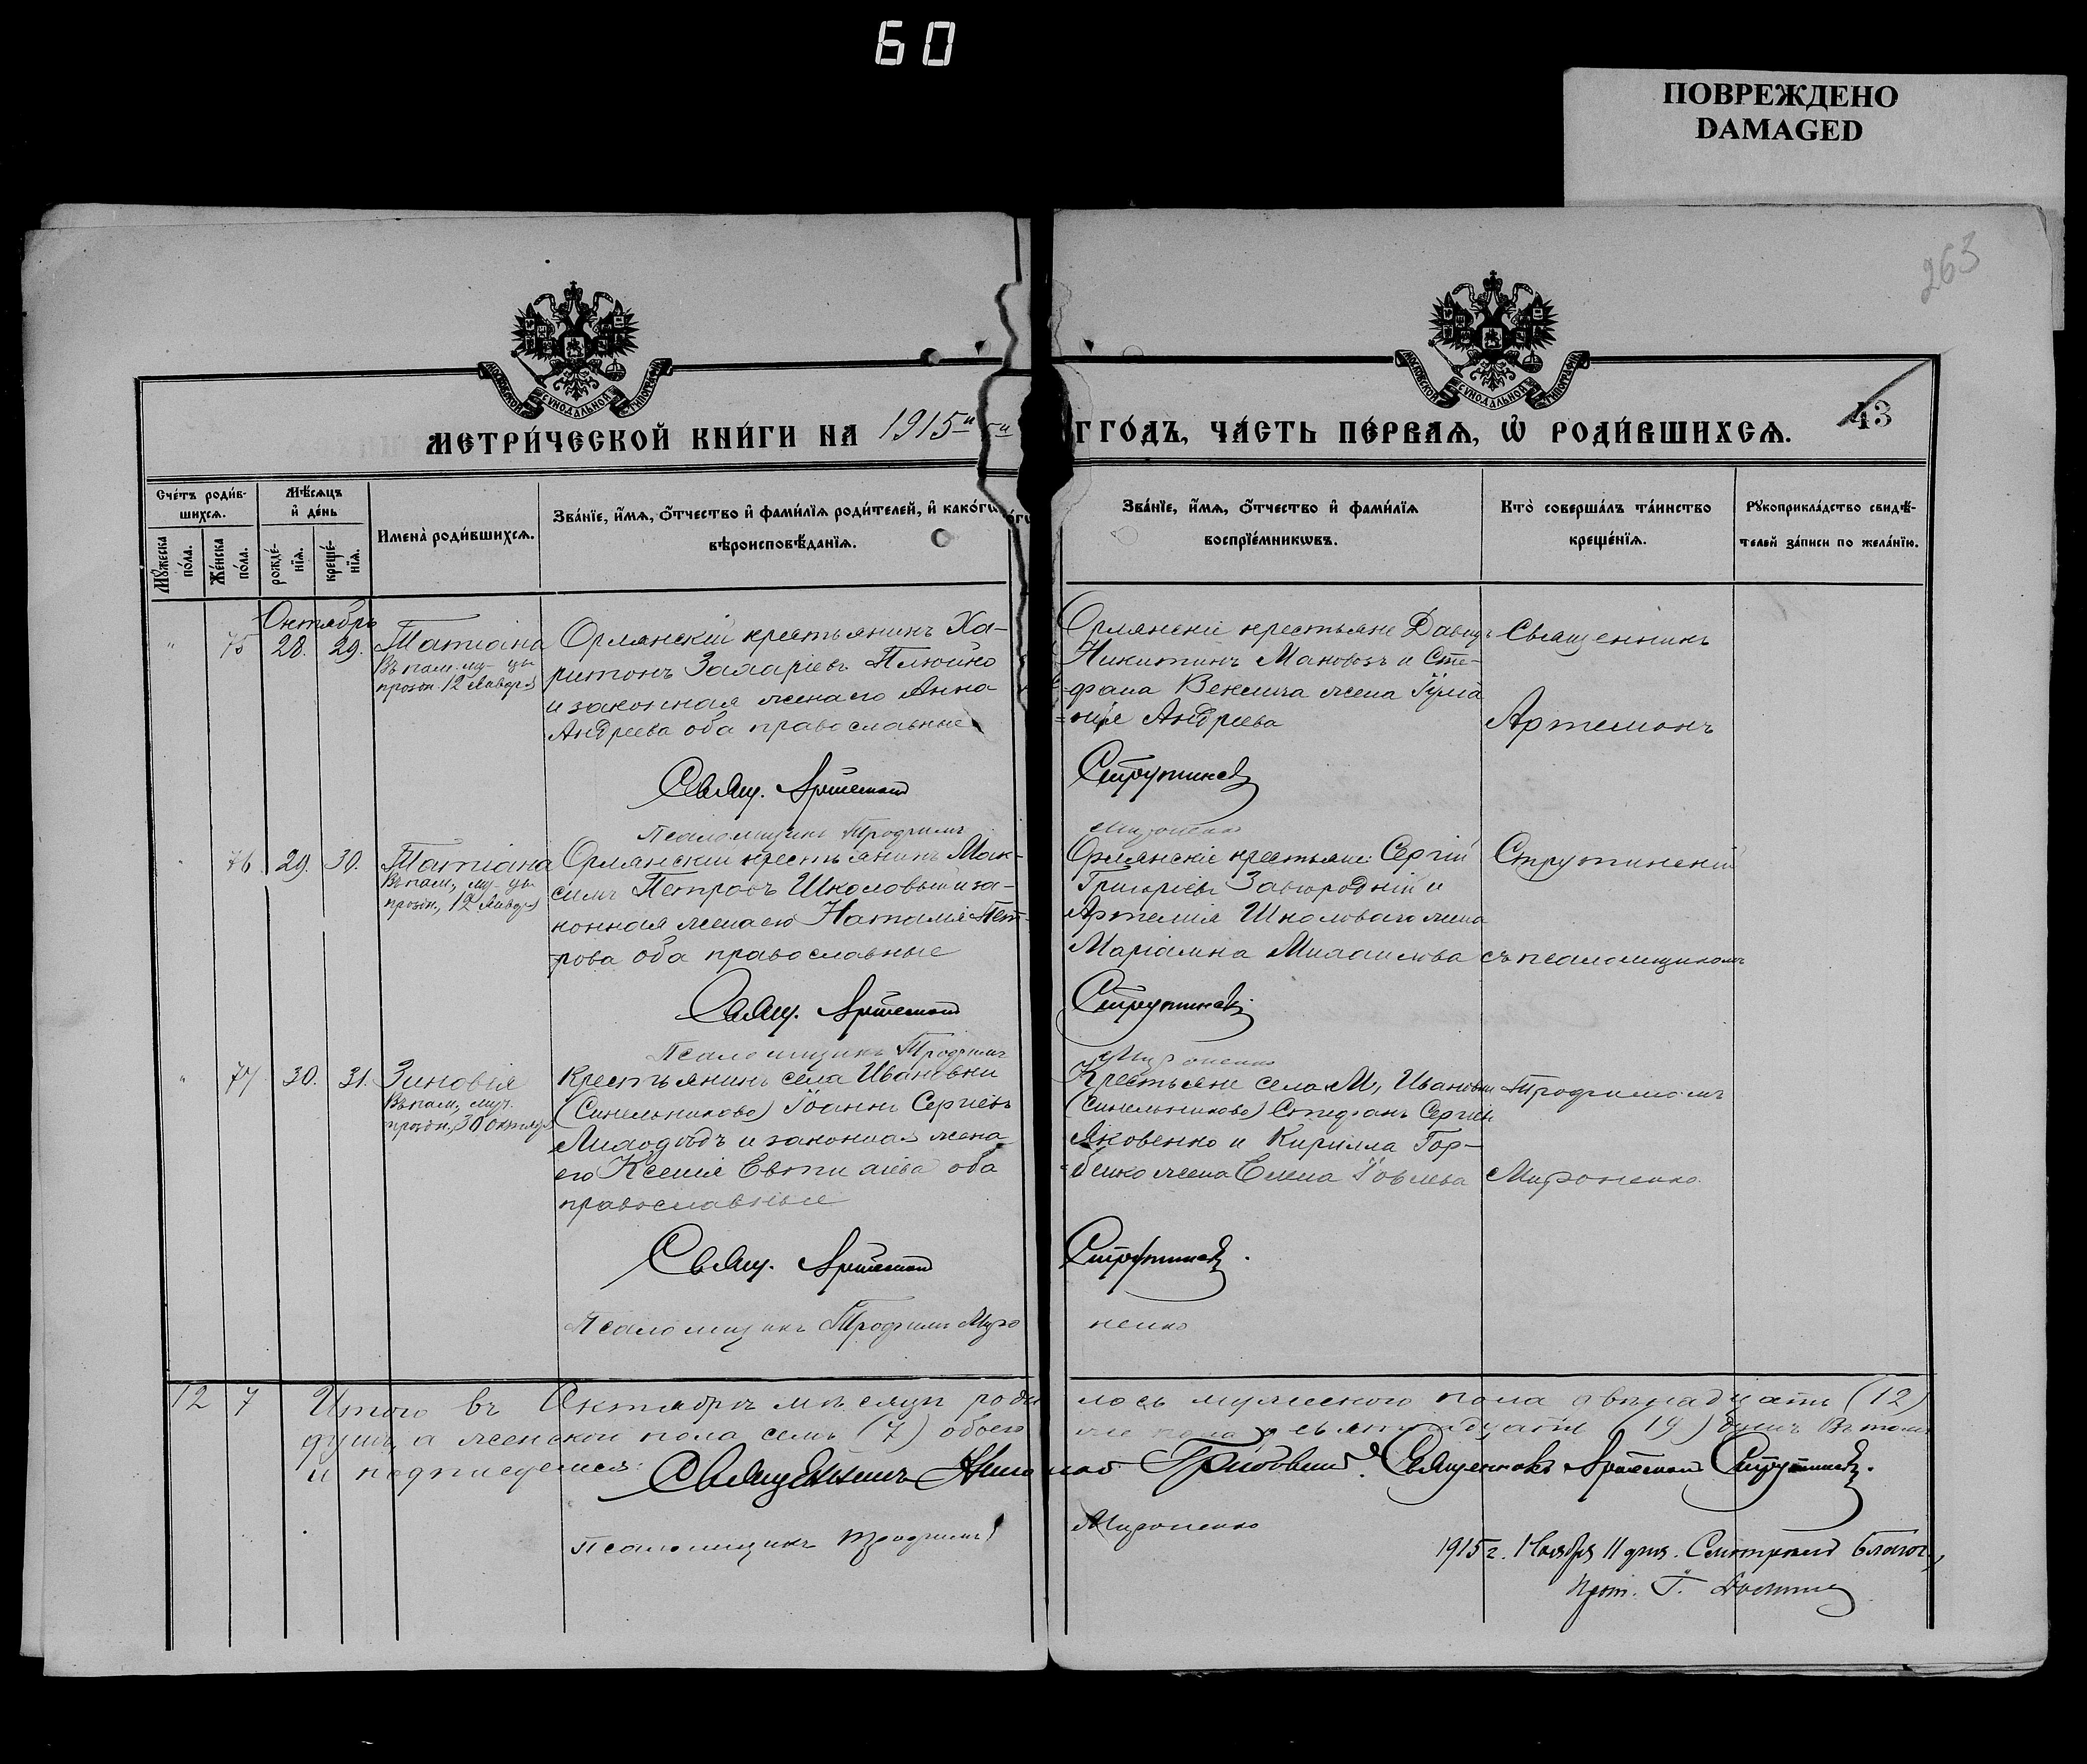 60
ПОВРЕЖДЕНО
DAMAGED
263
МОСКОВСКОЙ СѴНОДАЛЬНОЙ ТИПОГРАФІИ
МОСКОВСКОЙ СѴНОДАЛЬНОЙ ТИПОГРАФІИ
43
МЕТРИ́ЧЕСКОЙ КНИ́ГИ НА 1915й
ГО́ДЪ, ЧА́СТЬ ПЕ́РВАѦ, Ѡ҆ РОДИ́ВШИХСѦ.
Сче́тъ роди́в-
шихсѧ.
Мꙋ́жеска по́ла.
Же́нска по́ла.
Мѣ́сѧцъ
и҆ де́нь
рожде́-
нїѧ.
креще́-
нїѧ.
Имена̀ роди́вшихсѧ.
Зва́нїе, и҆́мѧ, ѻ҆́тчество и҆ фами́лїѧ роди́телей, и҆ како́гѡ
вѣроисповѣ́данїѧ.
Зва́нїе, и҆́мѧ, ѻ҆́тчество и҆ фами́лїѧ
воспрїе́мникѡвъ.
Кто̀ соверша́лъ та́инство
креще́нїѧ.
Рꙋкоприкла́дство свидѣ́-
телей за́писи по жела́нїю.
Октябрь
75 28. 29. Татіана
Въ пам. му-цы
празд. 12 Января
Орлянскій крестьянинъ Ха-
ритонъ Захаріевъ Плюйко
и законная жена его Анна
Андреева оба православные
Свящ. Артемонъ
Псаломщикъ Трофимъ
Орлянскіе крестьяне Давидъ
Никитинъ Мановозъ и Сте-
фана жена
Андреева
Струтинскій
Мироненко
Священникъ
Артемонъ
76 29. 30. Татіана
Въ пам. му-цы
празд., 12 Января
Орлянскій крестьянинъ Мак-
симъ Петровъ Школовый и за-
конная жена его Наталія Пет-
рова оба православные
Свящ. Артемонъ
Псаломщикъ Трофимъ
Орлянскіе крестьяне: Сергій
Григоріевъ Завгородній и
Артемія Школоваго жена
Маріамна Михаилова
Струтинскій
Мироненко
Струтинскій
съ псаломщикомъ
77 30. 31. Зиновія
Въ пам., муч.
празд., 30 Октября
Крестьянинъ села Ивановки
(Синельниково) Іоаннъ Сергіевъ
Лиходѣдъ и законная жена
его Ксенія оба
православные
Свящ. Артемонъ
Псаломщикъ Трофимъ Миро
Крестьяне села М, Ивановки
(Синельниково) Стефанъ Сергіевъ
Яковенко и Кирилла Гор-
бенко жена Елена Іовлева
Струтинскій.
ненко
Трофимомъ
Мироненко
12 7 Итого въ Октябрѣ мѣсяцѣ роди
лось мужескаго пола двѣнадцать (12)
душъ, а женской пола семь (7) обоего
же пола девятнадцать (19) душъ Въ томъ
и подписуемся: Священникъ
Священникъ Артемонъ Струтинскій.
Псаломщикъ Трофимъ
Мироненко
1915 г. Ноября 11 дня. Смотрѣлъ Благоч.,
Прот. І.